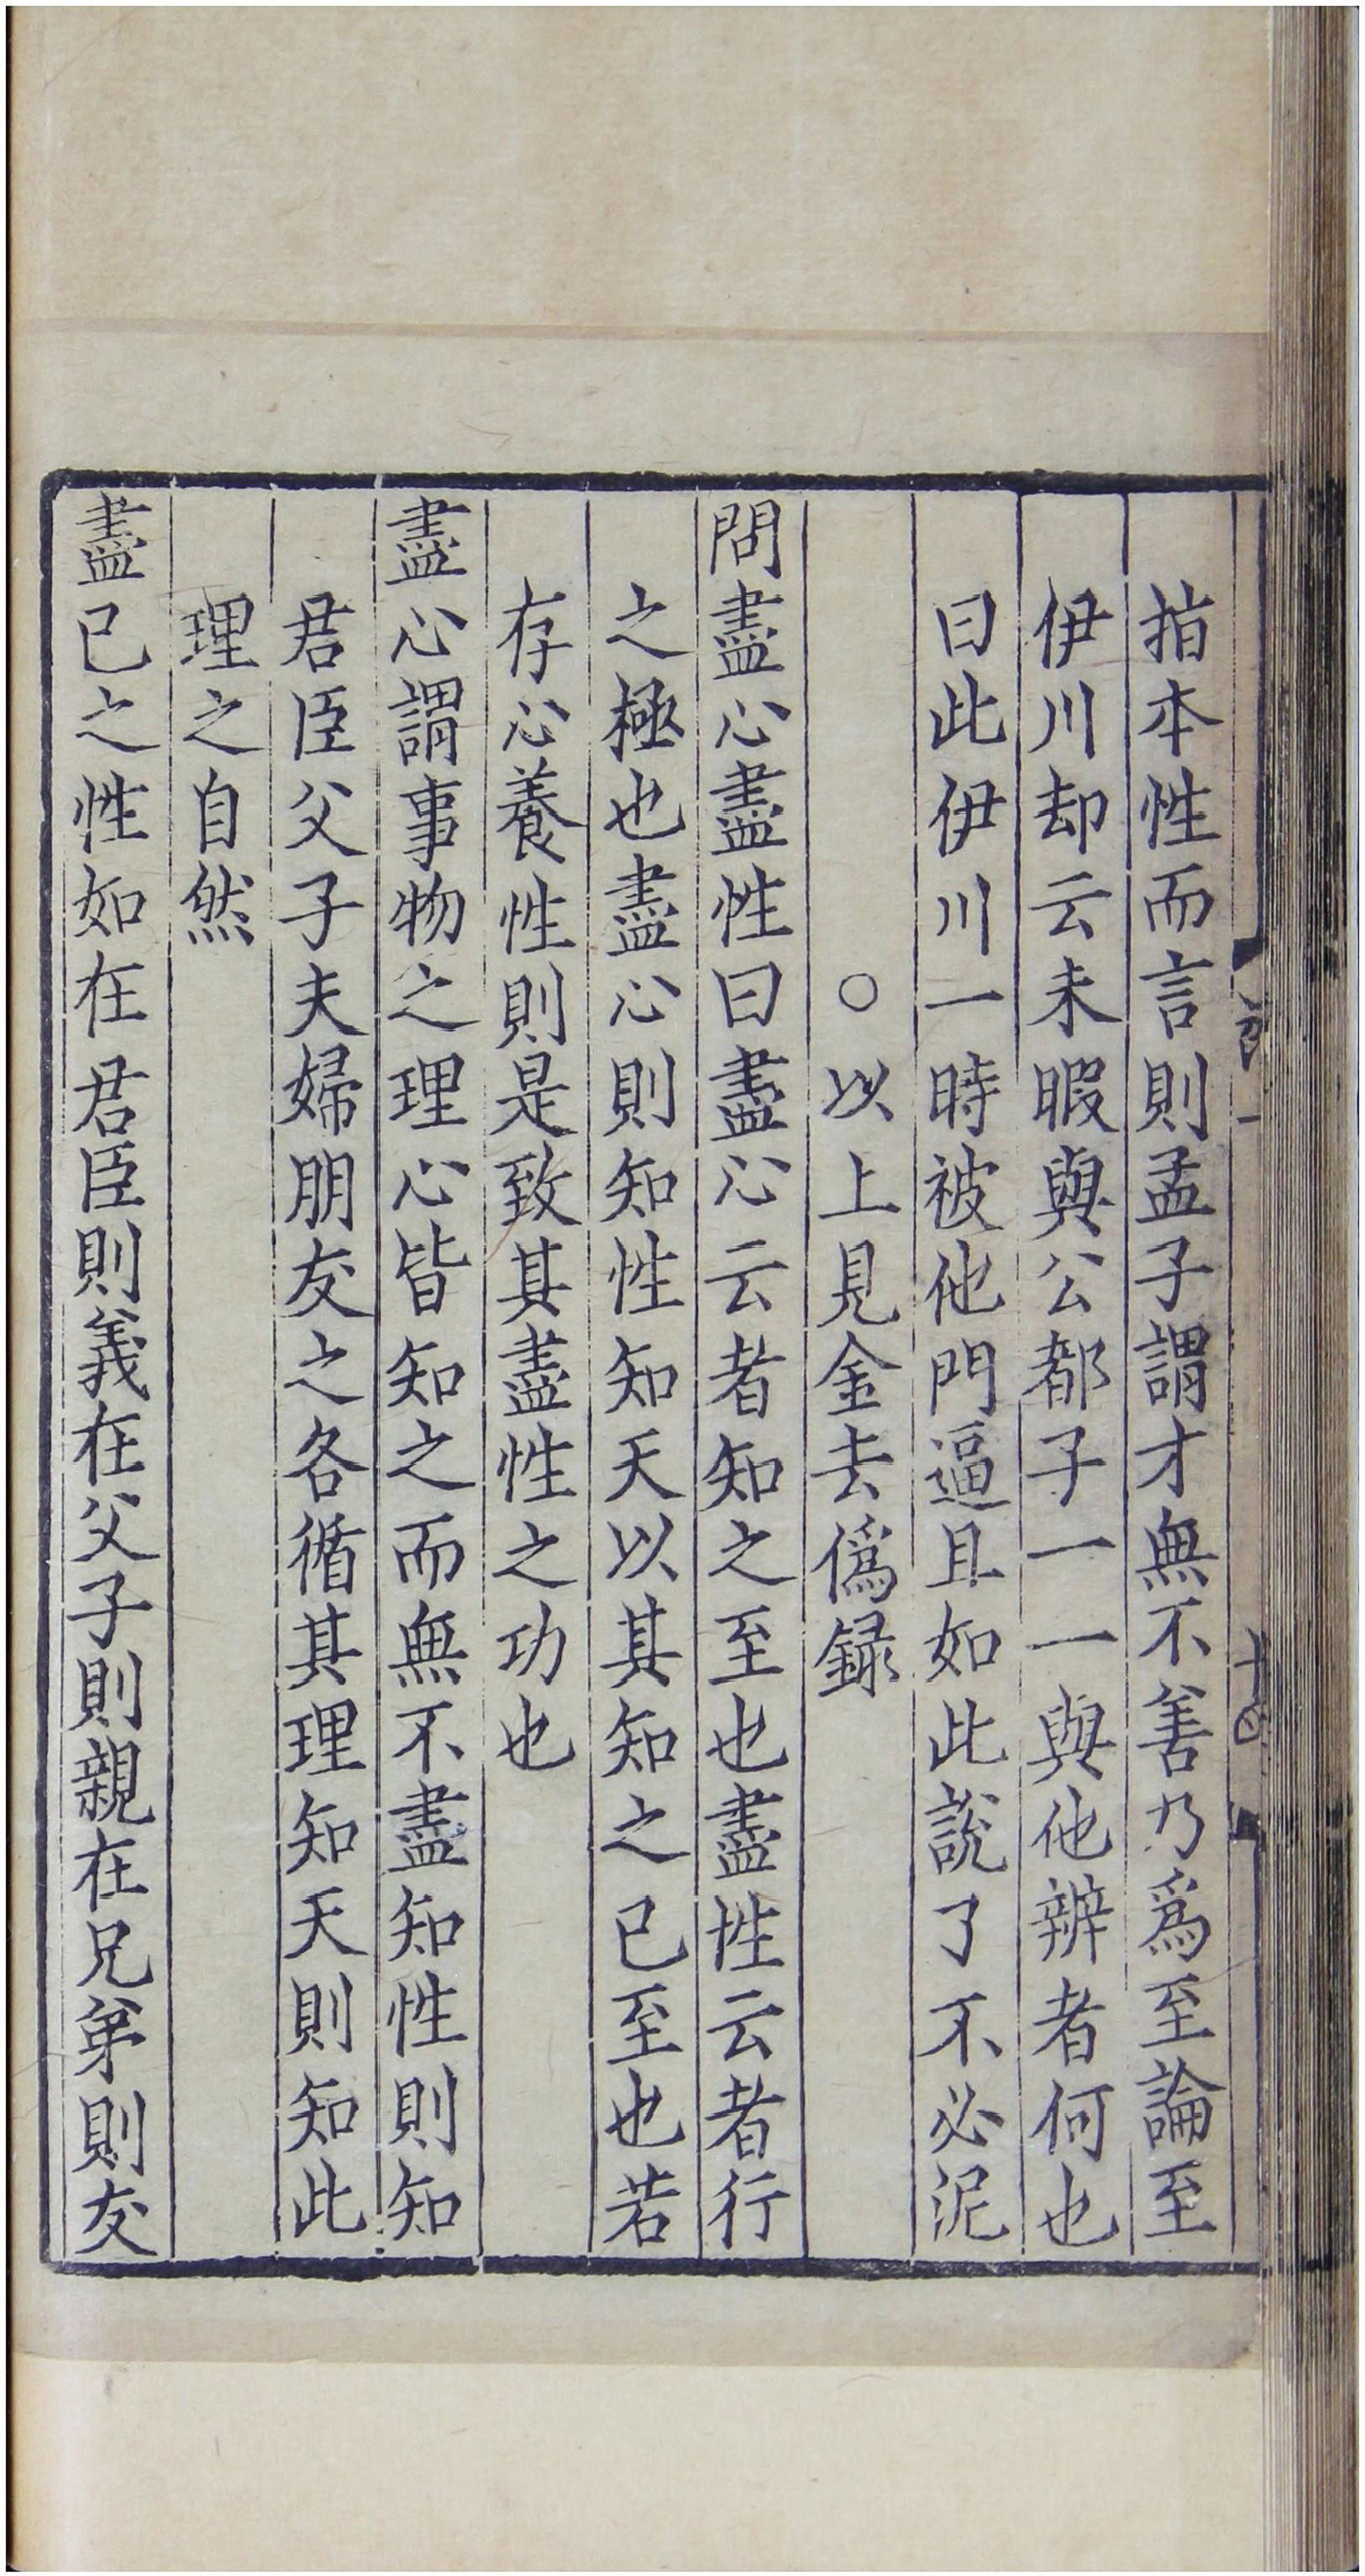 指本性而言則孟子謂才無不善乃爲至論至
伊川却云未暇與公都子一一與他辨者何也
曰此伊川一時被他門逼且如此說了不必泥
○以上見金去僞録
問盡心盡性曰盡心云者知之至也盡性云者行
之極也盡心則知性知天以其知之已至也若
存心養性則是致其盡性之功也
盡心謂事物之理心皆知之而無不盡知性則知
君臣父子夫婦朋友之各循其理知天則知此
理之自然
盡已之性如在君臣則義在父子則親在兄弟則友